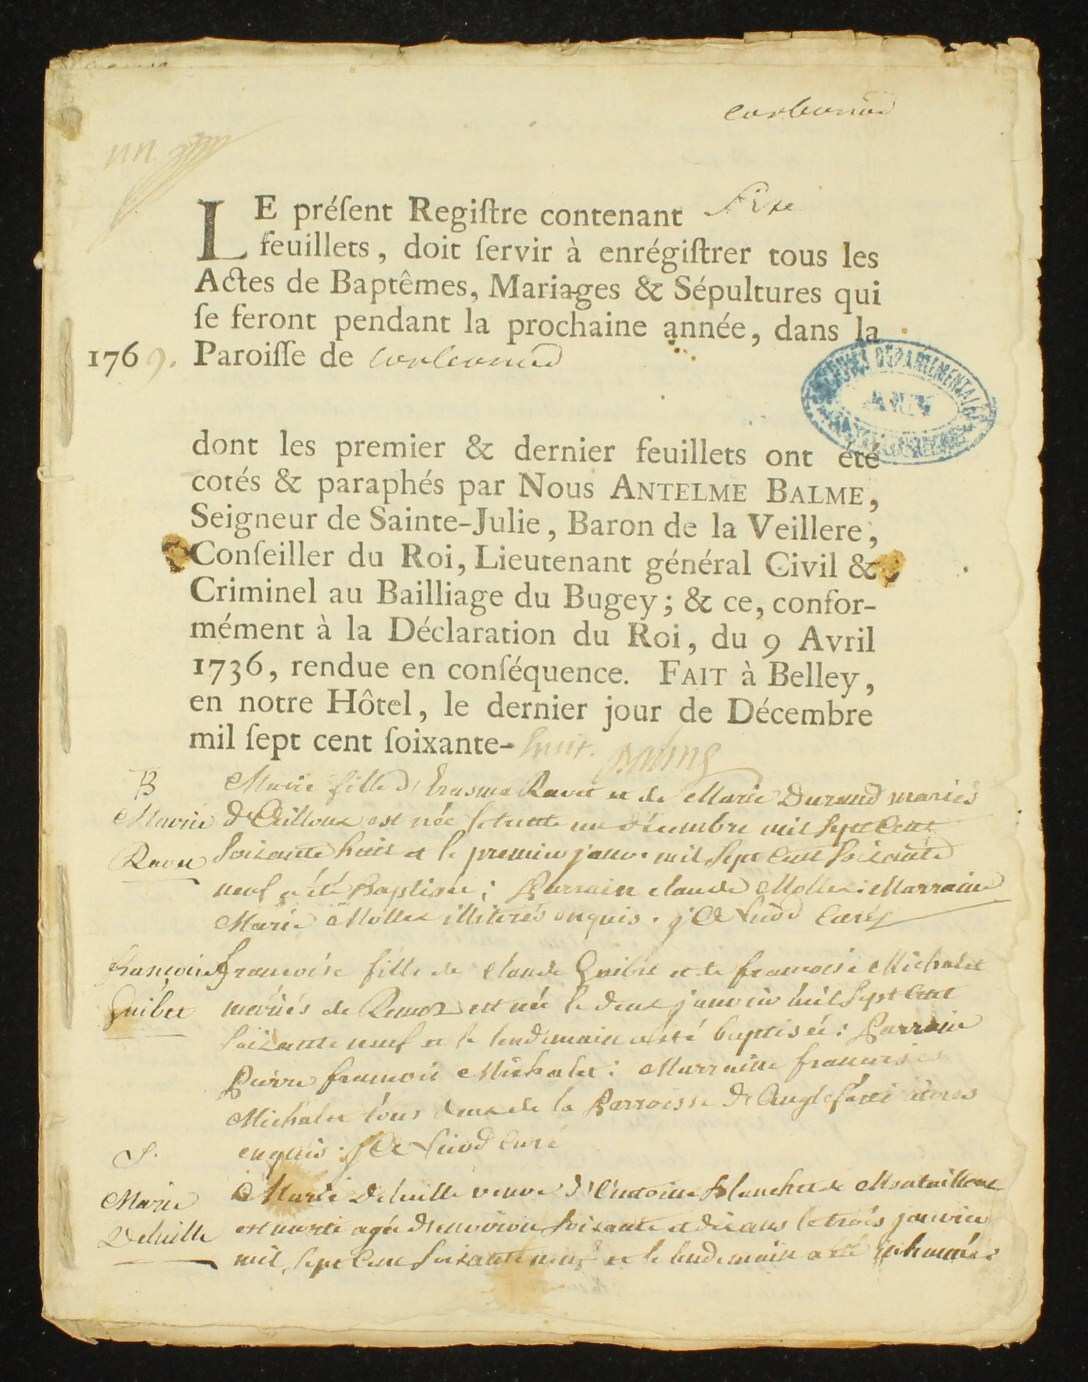 corbonod
LE préſent Regiſtre contenant Six
feuillets, doit ſervir à enrégiſtrer tous les
Actes de Baptêmes, Mariages & Sépultures qui
ſe feront pendant la prochaine année, dans la
1769. Paroiſſe de corbonod
ARCHIVES DÉPARTEMENTALES
dont les premier & dernier feuillets ont été
cotés & paraphés par Nous ANTELME BALME,
Seigneur de Sainte-Julie, Baron de la Veillere,
Conſeiller du Roi, Lieutenant général Civil &
Criminel au Bailliage du Bugey; & ce, confor-
mément à la Déclaration du Roi, du 9 Avril
1736, rendue en conſéquence. FAIT à Belley,
en notre Hôtel, le dernier jour de Décembre
mil ſept cent ſoixante-huit. Balme
B Marie fille d'Erasme Ravet et de Marie Durand mariés
Marie est née le trente un décembre mil sept cent
Ravet soixante huit et le premier janv. mil sept cent soixante
neuf a été Baptisée; Parrain claude Mollex: Marraine
Marie Mollex illiterés enquis.
françoise françoise fille de claude Guibet et de francoise Michalet
Guibet mariés de est née le deux janvier mil sept cent
soixante neuf et le lendemain a été baptisée: Parrain
Pierre francois Michalet: Marraine francoise
Michalet tous deux de la Parroisse d'Anglefort
enquis: Curé
S.
Marie Marie veuve d'Antoine Blanchet de
est morte agée d'environ soixante et dix ans le trois janvier
mil sept cent soixante neuf et le lendemain a été inhumée